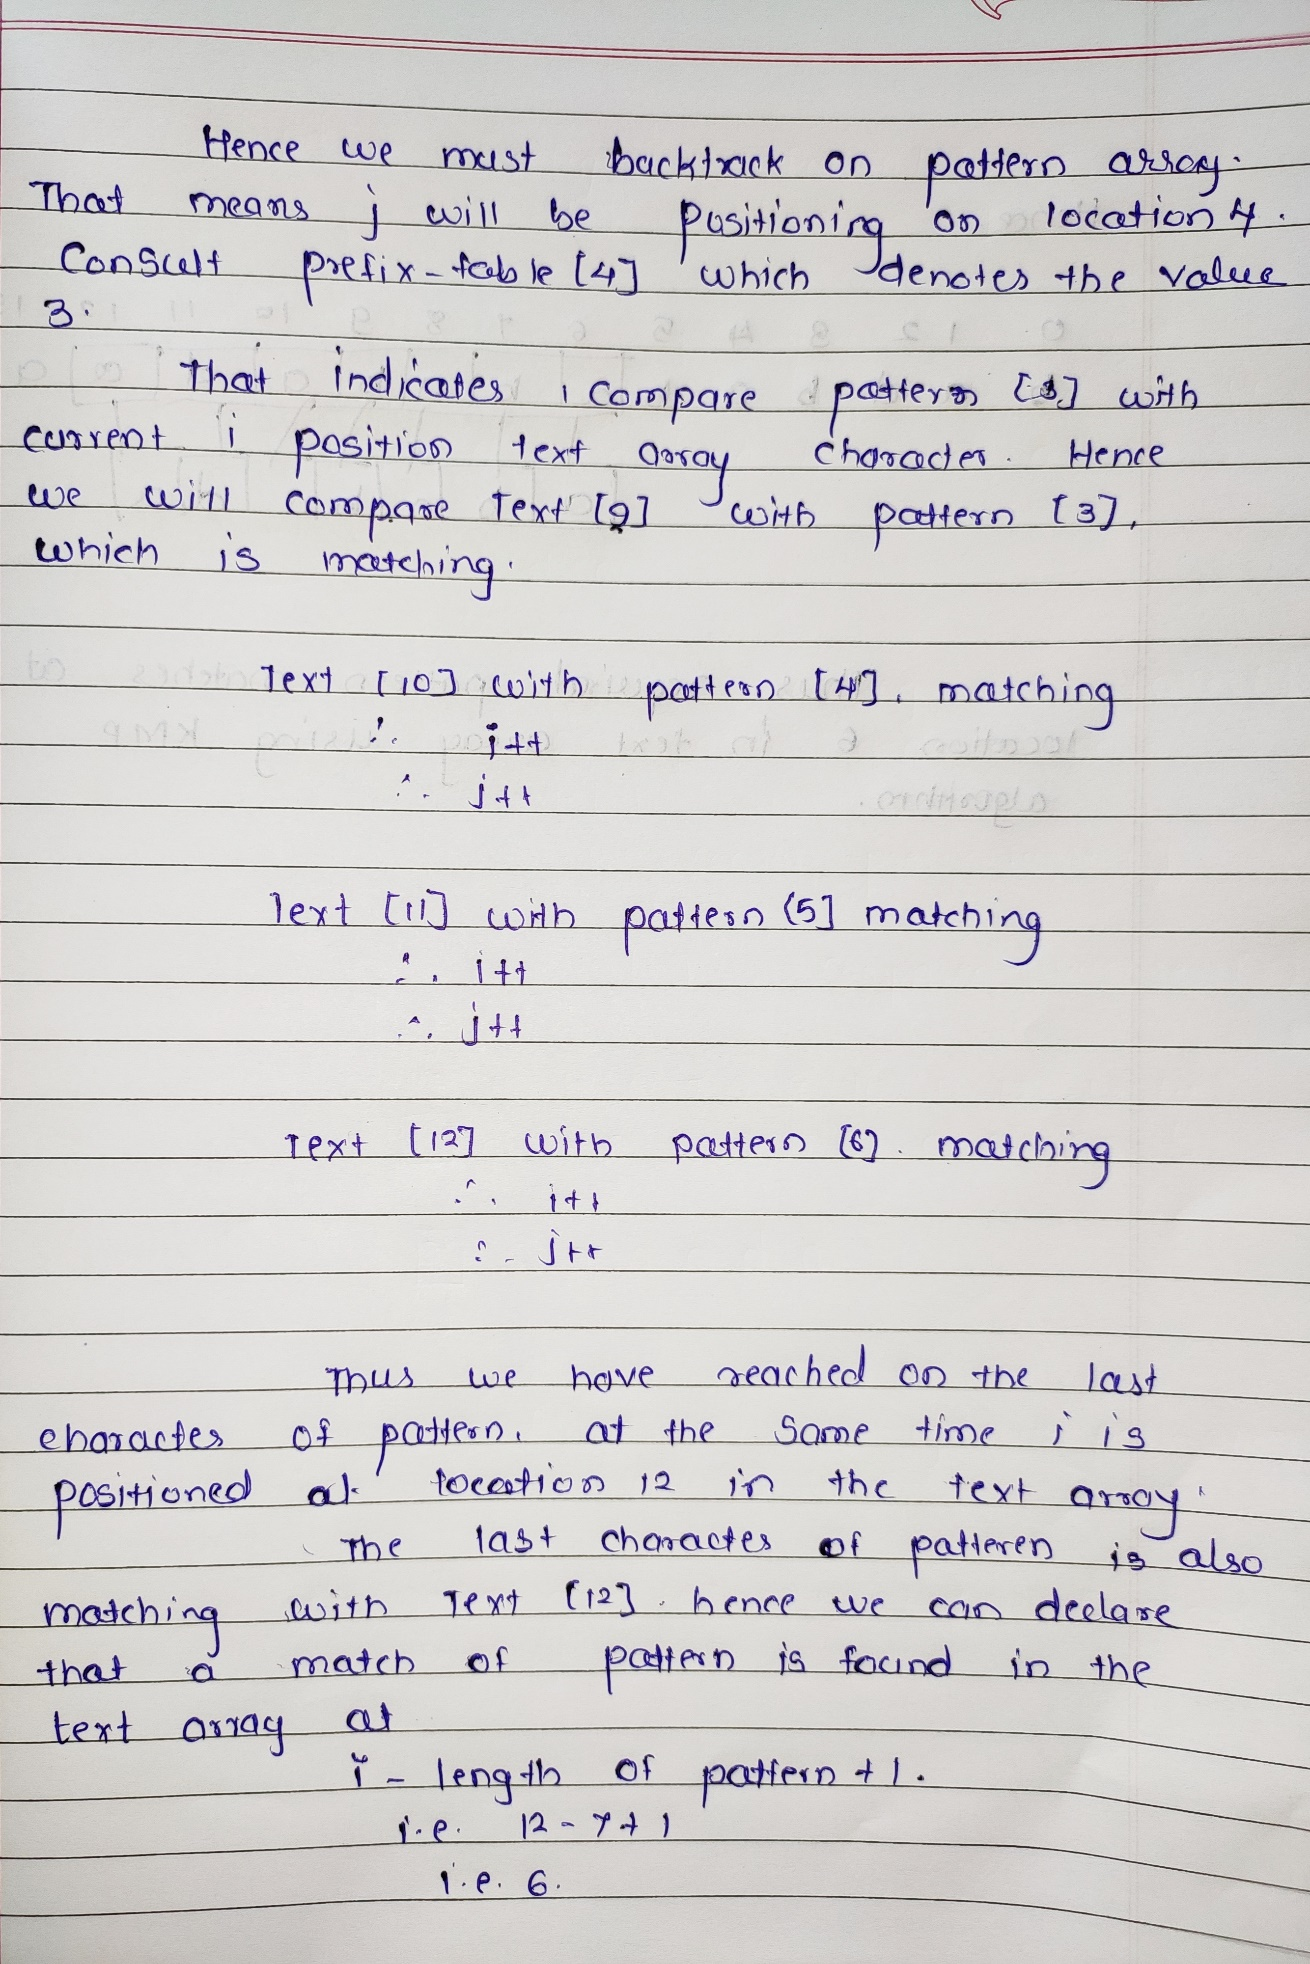 Hence we must backtrack on pattern array.
That means j will be positioning on location 4.
Consult prefix-table [4] which denotes the value
3.
That indicates, compare pattern [3] with
current i position text array character. Hence
we will compare Text [9] with pattern [3],
which is matching.
Text [10] with pattern [4]. matching
∴ i++
∴ j++
Text [11] with pattern [5] matching
∴ i++
∴ j++
Text [12] with pattern [6]. matching
∴ i++
∴ j++
Thus we have reached on the last
character of pattern. at the same time i is
positioned at location 12 in the text array.
The last character of patteren is also
matching with Text [12]. hence we can declare
that a match of pattern is found in the
text array at
i - length of pattern + 1.
i.e. 12 - 7 + 1
i.e. 6.